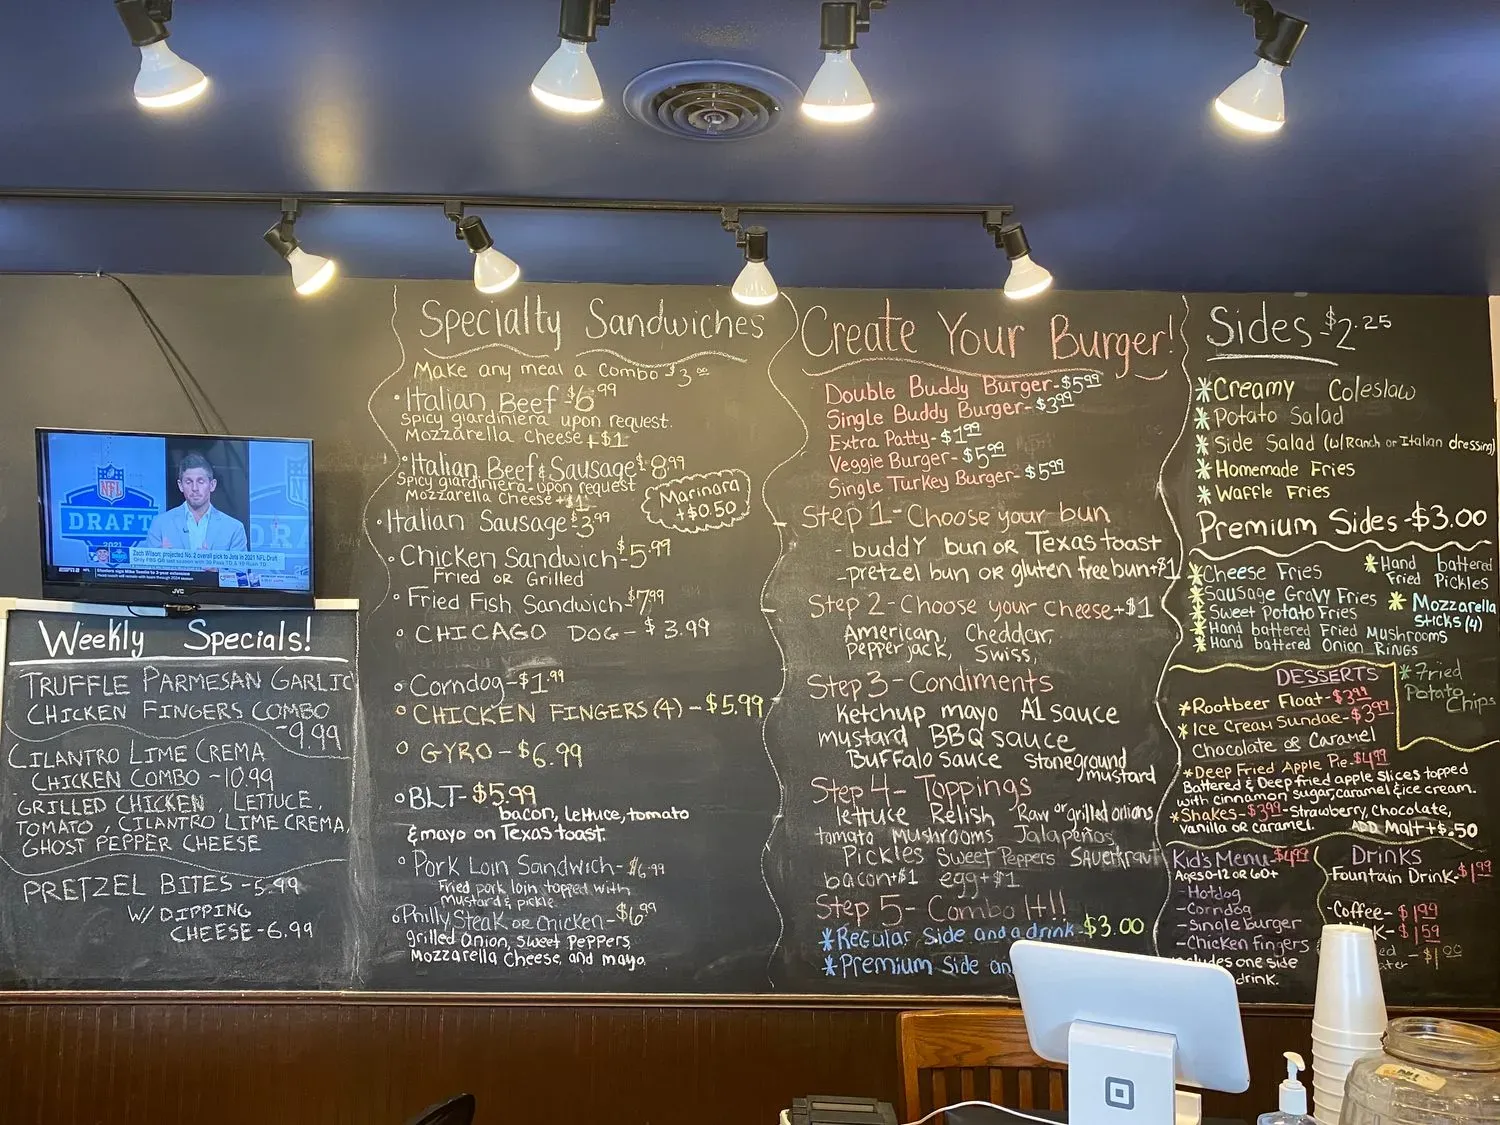 NFL
DRAFT
2021
Zach Wilson: projected No. 2 overall pick to Jets in 2021 NFL Draft
JVC
Weekly Specials!
TRUFFLE PARMESAN GARLIC
CHICKEN FINGERS COMBO
-9.99
CILANTRO LIME CREMA
CHICKEN COMBO -10.99
GRILLED CHICKEN, LETTUCE,
TOMATO, CILANTRO LIME CREMA,
GHOST PEPPER CHEESE
PRETZEL BITES -5.99
W/ DIPPING
CHEESE -6.99
Specialty Sandwiches
Make any meal a combo $3.00
Italian Beef $6.99
Spicy giardiniera upon request.
Mozzarella Cheese +$1
Italian Beef & Sausage $8.99
Spicy giardiniera upon request
Mozzarella Cheese +$1
Marinara
+$0.50
Italian Sausage $3.99
Chicken Sandwich-$5.99
Fried or Grilled
Fried Fish Sandwich-$7.99
CHICAGO DOG-$3.99
Corndog-$1.99
CHICKEN FINGERS (4) -$5.99
GYRO -$6.99
BLT-$5.99
bacon, lettuce, tomato
& mayo on Texas toast.
Pork Loin Sandwich-$6.99
Fried pork loin topped with
mustard & pickle
Philly Steak or Chicken-$6.99
grilled Onion, Sweet Peppers,
Mozzarella Cheese, and mayo.
Create Your Burger!
Double Buddy Burger-$5.99
Single Buddy Burger-$3.99
Extra Patty-$1.99
Veggie Burger-$5.99
Single Turkey Burger-$5.99
Step 1-Choose your bun
buddy bun or Texas toast
-pretzel bun or gluten free bun+$1
Step 2-Choose your cheese+$1
American, Cheddar,
Pepperjack, Swiss,
Step 3-Condiments
ketchup mayo A1 sauce
mustard BBQ sauce
Buffalo sauce Stoneground
mustard
Step 4-Toppings
lettuce Relish Raw or grilled onions
tomato Mushrooms Jalapeños
Pickles Sweet Peppers Sauerkraut
bacon+$1 egg+$1
Step 5-Combo It!!
*Regular side and a drink-$3.00
*Premium Side an
Sides-$2.25
*Creamy Coleslaw
*Potato Salad
*Side Salad (w/Ranch or Italian dressing)
*Homemade Fries
*Waffle Fries
Premium Sides-$3.00
*Cheese Fries
*Sausage Gravy Fries
*Sweet Potato Fries
*Hand battered Fried Mushrooms
*Hand battered Onion Rings
*Hand battered
Fried Pickles
*Mozzarella
Sticks (4)
*Fried
Potato
Chips
DESSERTS
*Rootbeer Float-$3.99
*Ice Cream Sundae-$3.99
Chocolate or Caramel
*Deep Fried Apple Pie-$4.99
Battered & Deep fried apple slices topped
with cinnamon sugar, caramel & ice cream.
*Shakes-$3.99-Strawberry, chocolate,
vanilla or caramel. ADD Malt+$.50
Kid's Menu-$4.99
Ages 0-12 or 60+
-Hotdog
-Corndog
-Single burger
-Chicken fingers
one side
drink.
Drinks
Fountain Drink-$1.99
-Coffee-$1.99
-$1.59
-$1.00